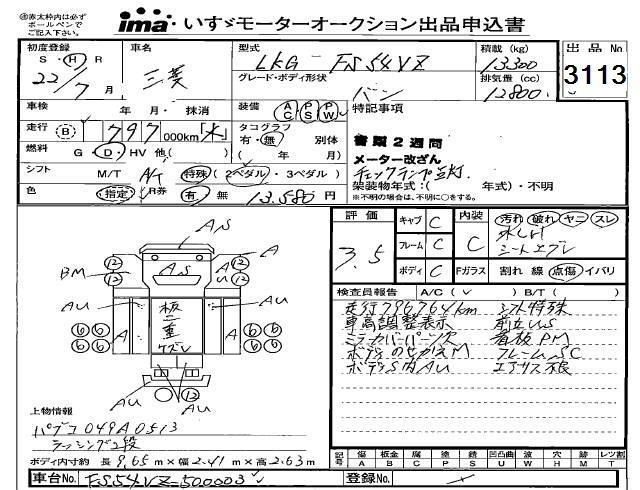 ㊟赤太枠内は必ず
ボールペンで
ご記入下さい。
ima いすゞモーターオークション出品申込書
初度登録 S・H・R 22/7月
車名 三菱
型式 LKG-FS54VZ
グレード・ボディ形状 バン
積載 (kg) 13300
排気量 (cc) 12800
出品No 3113
車検 年 月・抹消
装備 AC PS PW
特記事項
走行 B 797 000km
タコグラフ 有・無 別体
( 年 月)
書類2週間
メーター改ざん
チェックランプ点灯.
燃料 G・D・HV 他( )
シフト M/T A/T 特殊(2ペダル・3ペダル)
架装物年式:( 年式)・不明
※不明の場合は、不明に○をする。
色 指定 R券 有・無 13.580円
評価 3.5
キャブ C 内装 C 汚れ 破れ ヤニ スレ
フレーム C
ボディ C Fガラス 割れ 線 点傷 イバリ
検査員報告 A/C ( ) B/T ( )
走行797764km シフト特殊
車高調整表示 前立US
ミラーカバーバーン欠 看板PM
ボディのせかえM フレームSC
ボディS内AU エアサス根
12 AS A 12
BM AS AU
12 12
AU 板二重 AU
6 6 A A 6 6
6 6 6 6
12
AU AU
上物情報
パブコ 049A0513
ラッシング2段
ボディ内寸約 長9.65m×幅2.41m×高2.63m
記号 傷A 板金B 腐C 塗P 錆S 凹凸曲U 波W 穴H 跡M レツ割T
車台No. FS54VZ-500003
登録No.